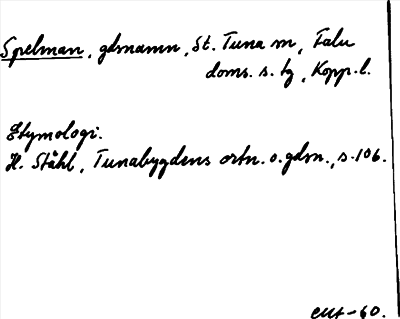 Spelman, gdsnamn, St. Tuna sn, Falu
doms. s. tg, Kopp. l.
Etymologi.
H. Ståhl, Tunabygdens ortn. o. gdsn., s. 106.
-60.